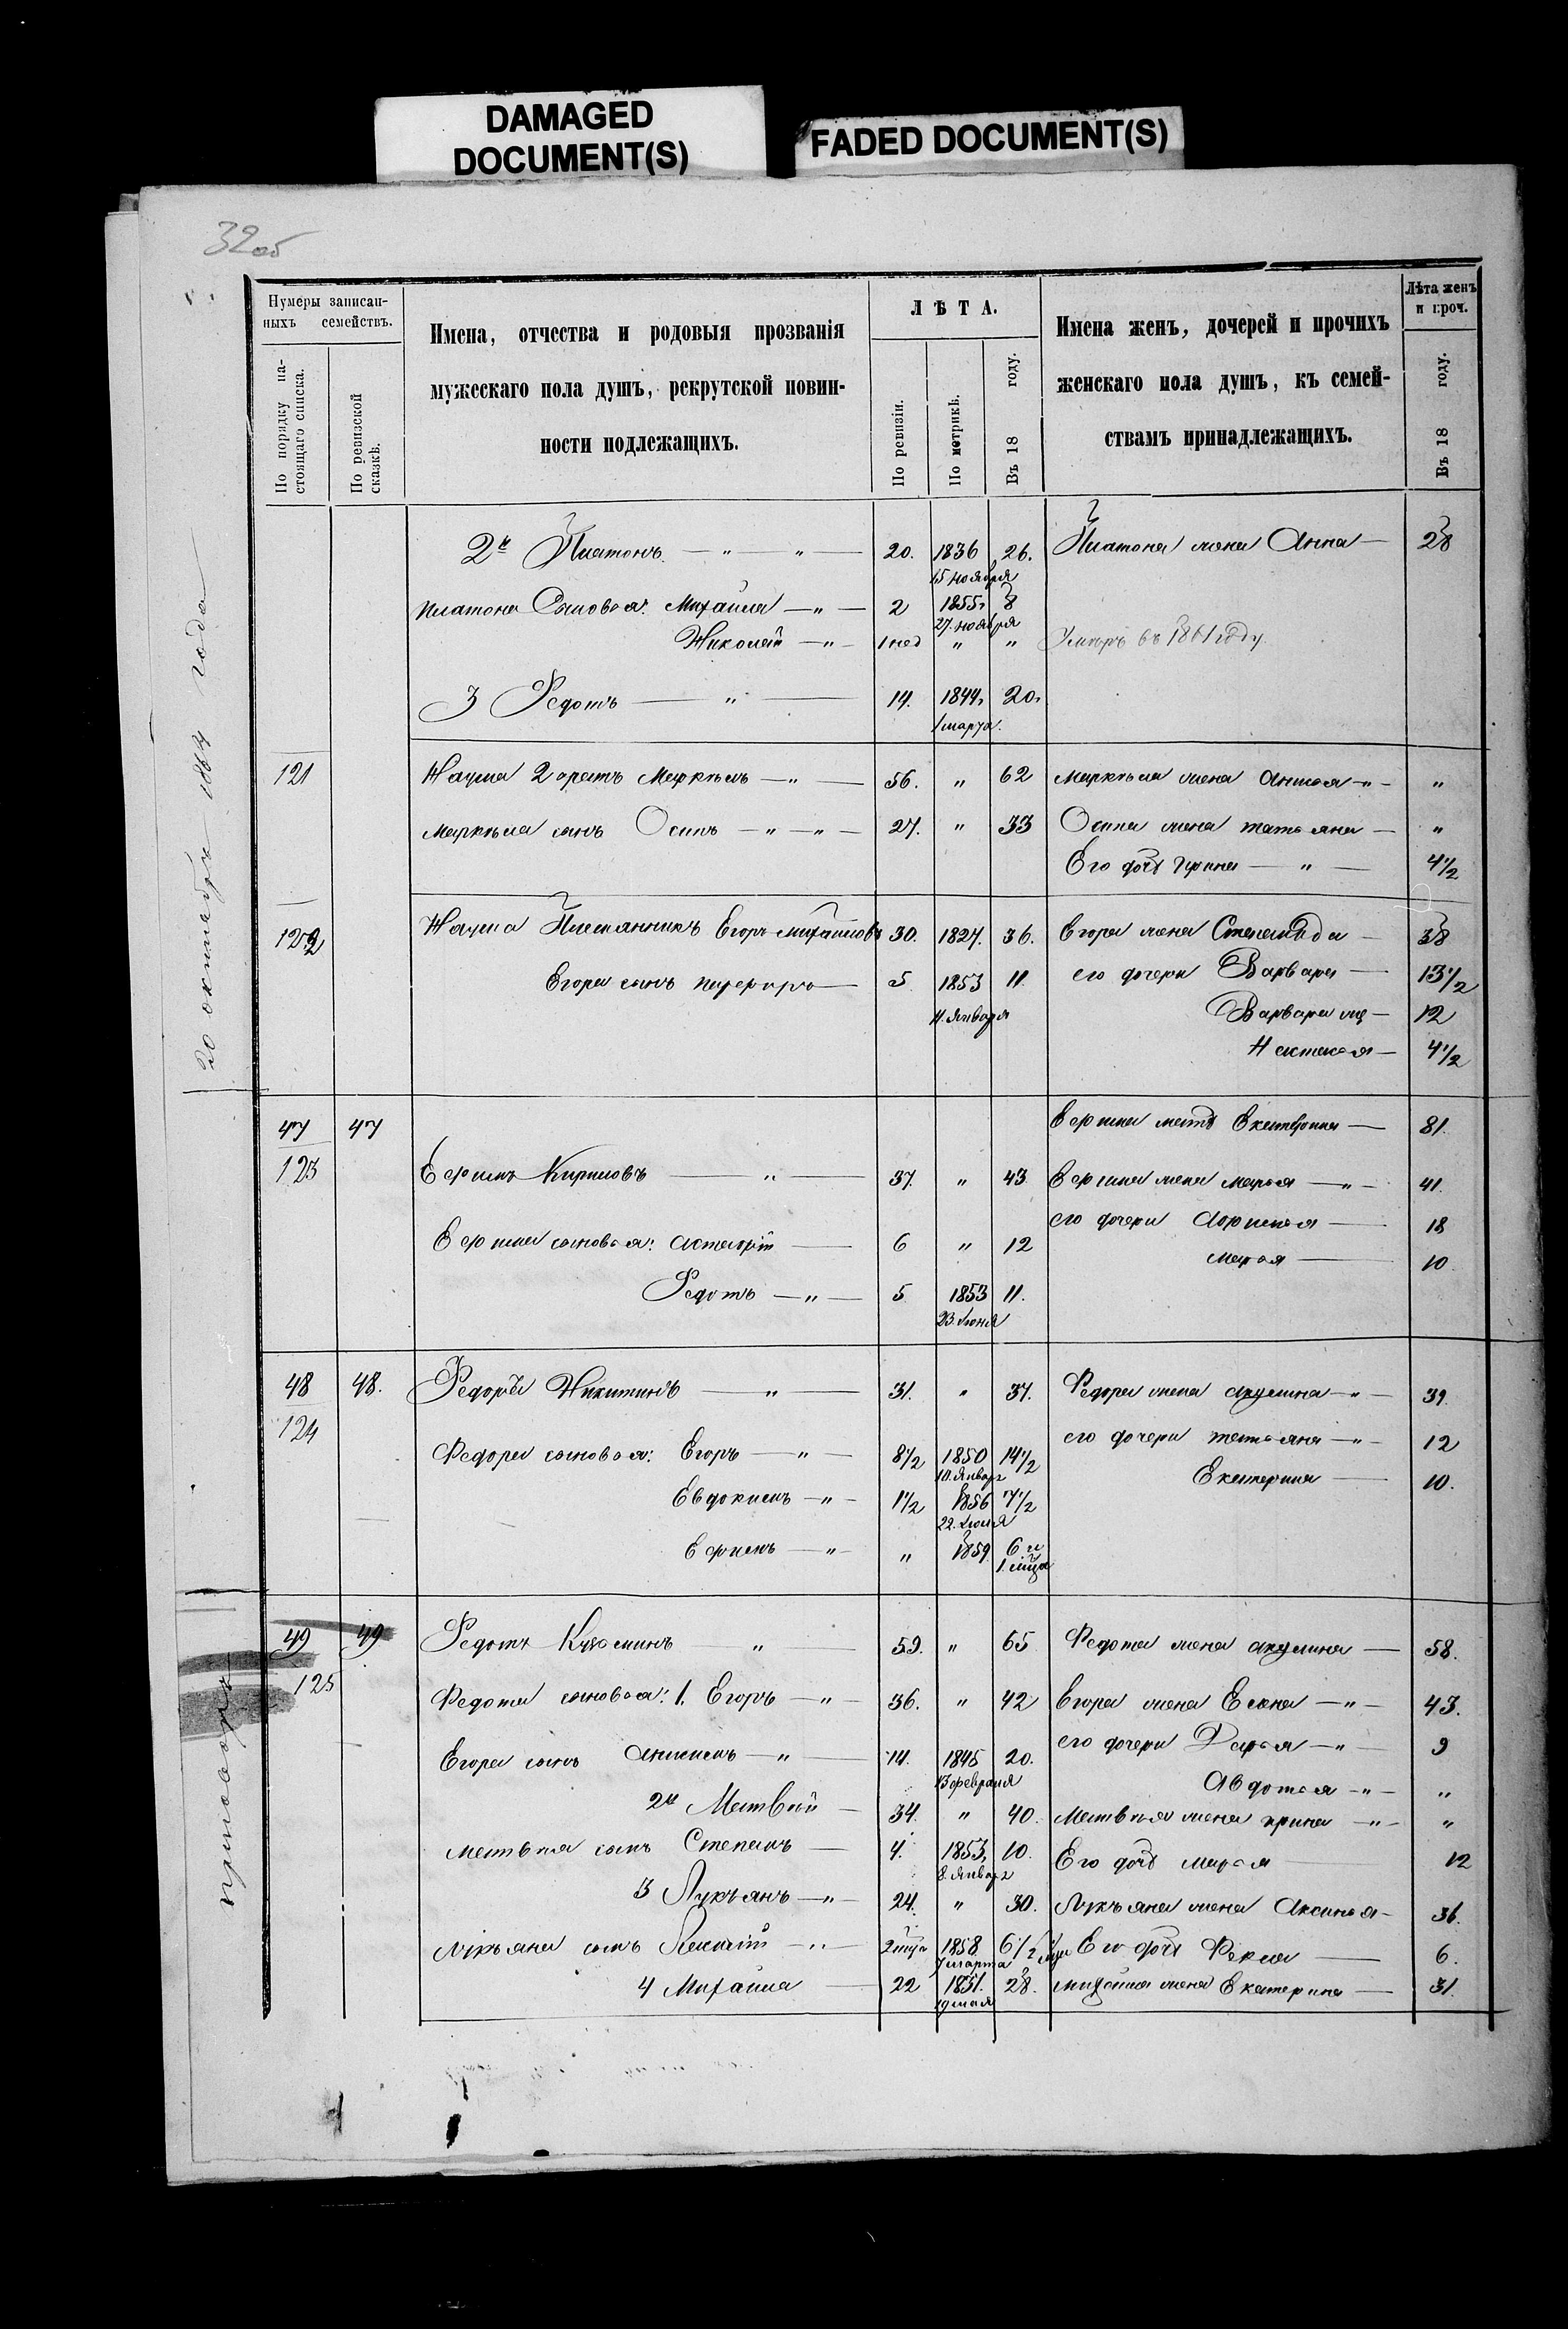 DAMAGED
DOCUMENT(S)
FADED DOCUMENT(S)
32 об
Нумеры записан-
ныхъ семействъ.
По порядку на-
стоящаго списка.
По ревизской
сказкѣ.
Имена, отчества и родовыя прозванія
мужескаго пола душъ, рекрутской повин-
ности подлежащихъ.
ЛѢТА.
По ревизіи.
По метрикѣ.
Въ 18 году.
Имена женъ, дочерей и прочихъ
женскаго пола душъ, къ семей-
ствамъ принадлежащихъ.
Лѣта женъ
и проч.
Въ 18 году.
20 октября 1864 года
приговоръ
2й Платонъ — " — " — 20. 1836 26. Платона жена Анна — 28
15 ноября
Платона Сыновья: Михайла — " — 2 1855 8
27. ноября
Николай — " — 1 нед " " Умеръ въ 1861 году.
3 Федотъ — " — 14. 1844 20.
1 марта.
121 Наума 2 братъ Маркелъ — " — 56. " 62 Маркела жена Анисья — " — "
Маркела сынъ Осипъ — " — " — 27. " 33 Осипа жена Татьяна — "
Его дочь Ирина — " — 4 1/2
122 Наума Племянникъ Егоръ Михайловъ 30. 1827. 36. Егора жена Степанида — 38
Егора сынъ — 5 1853 11. его дочери Варвара — 13 1/2
11. Января
Варвара — 12
Настасья — 4 1/2
47 47 Ефима мать Екатерина — 81.
123 Ефимъ Кириловъ — " — 37. " 43 Ефима жена Марья — " — 41.
его дочери Афимья — 18
Ефима сыновья: Астафій — 6 " 12
Марья — 10.
Федотъ — " — 5 1853 11.
23. Іюня
48 48. Федоръ Никитинъ — " — 31. " 37. Федора жена Акулина — " — 39.
124 его дочери Татьяна — " — 12
Федора сыновья: Егоръ — " — 8 1/2 1850 14 1/2
10. Январ
Екатерина — 10.
Евдокимъ — " — 1 1/2 1856 7 1/2
Ефимъ — " — " 1859 6 и
1. мѣца
49 49 Федотъ Кузьминъ — " — 59. " 65 Федота жена Акулина — 58.
125 Федота сыновья: 1. Егоръ — " — 36. " 42 Егора жена Елена — " — 43.
его дочери Дарья — " — 9
Егора сынъ Анисимъ — " — 14. 1845 20.
13 февраля
Авдотья — " — "
2й Матвѣй — 34. " 40. Матвѣя жена Ирина — " — "
Матвѣя сынъ Степанъ — 4. 1853, 10. Его дочь Марья — 12
8. Январ
3 Лукьянъ — " — 24. " 30. Лукьяна жена Аксинья — 36.
Лукьяна сынъ — " — 2 мѣця 1858 6 1/2 Его дочь Фекла — 6.
7 марта
4 Михайла — 22 1831. 28. Михайла жена Екатерина — 31.
19 мая